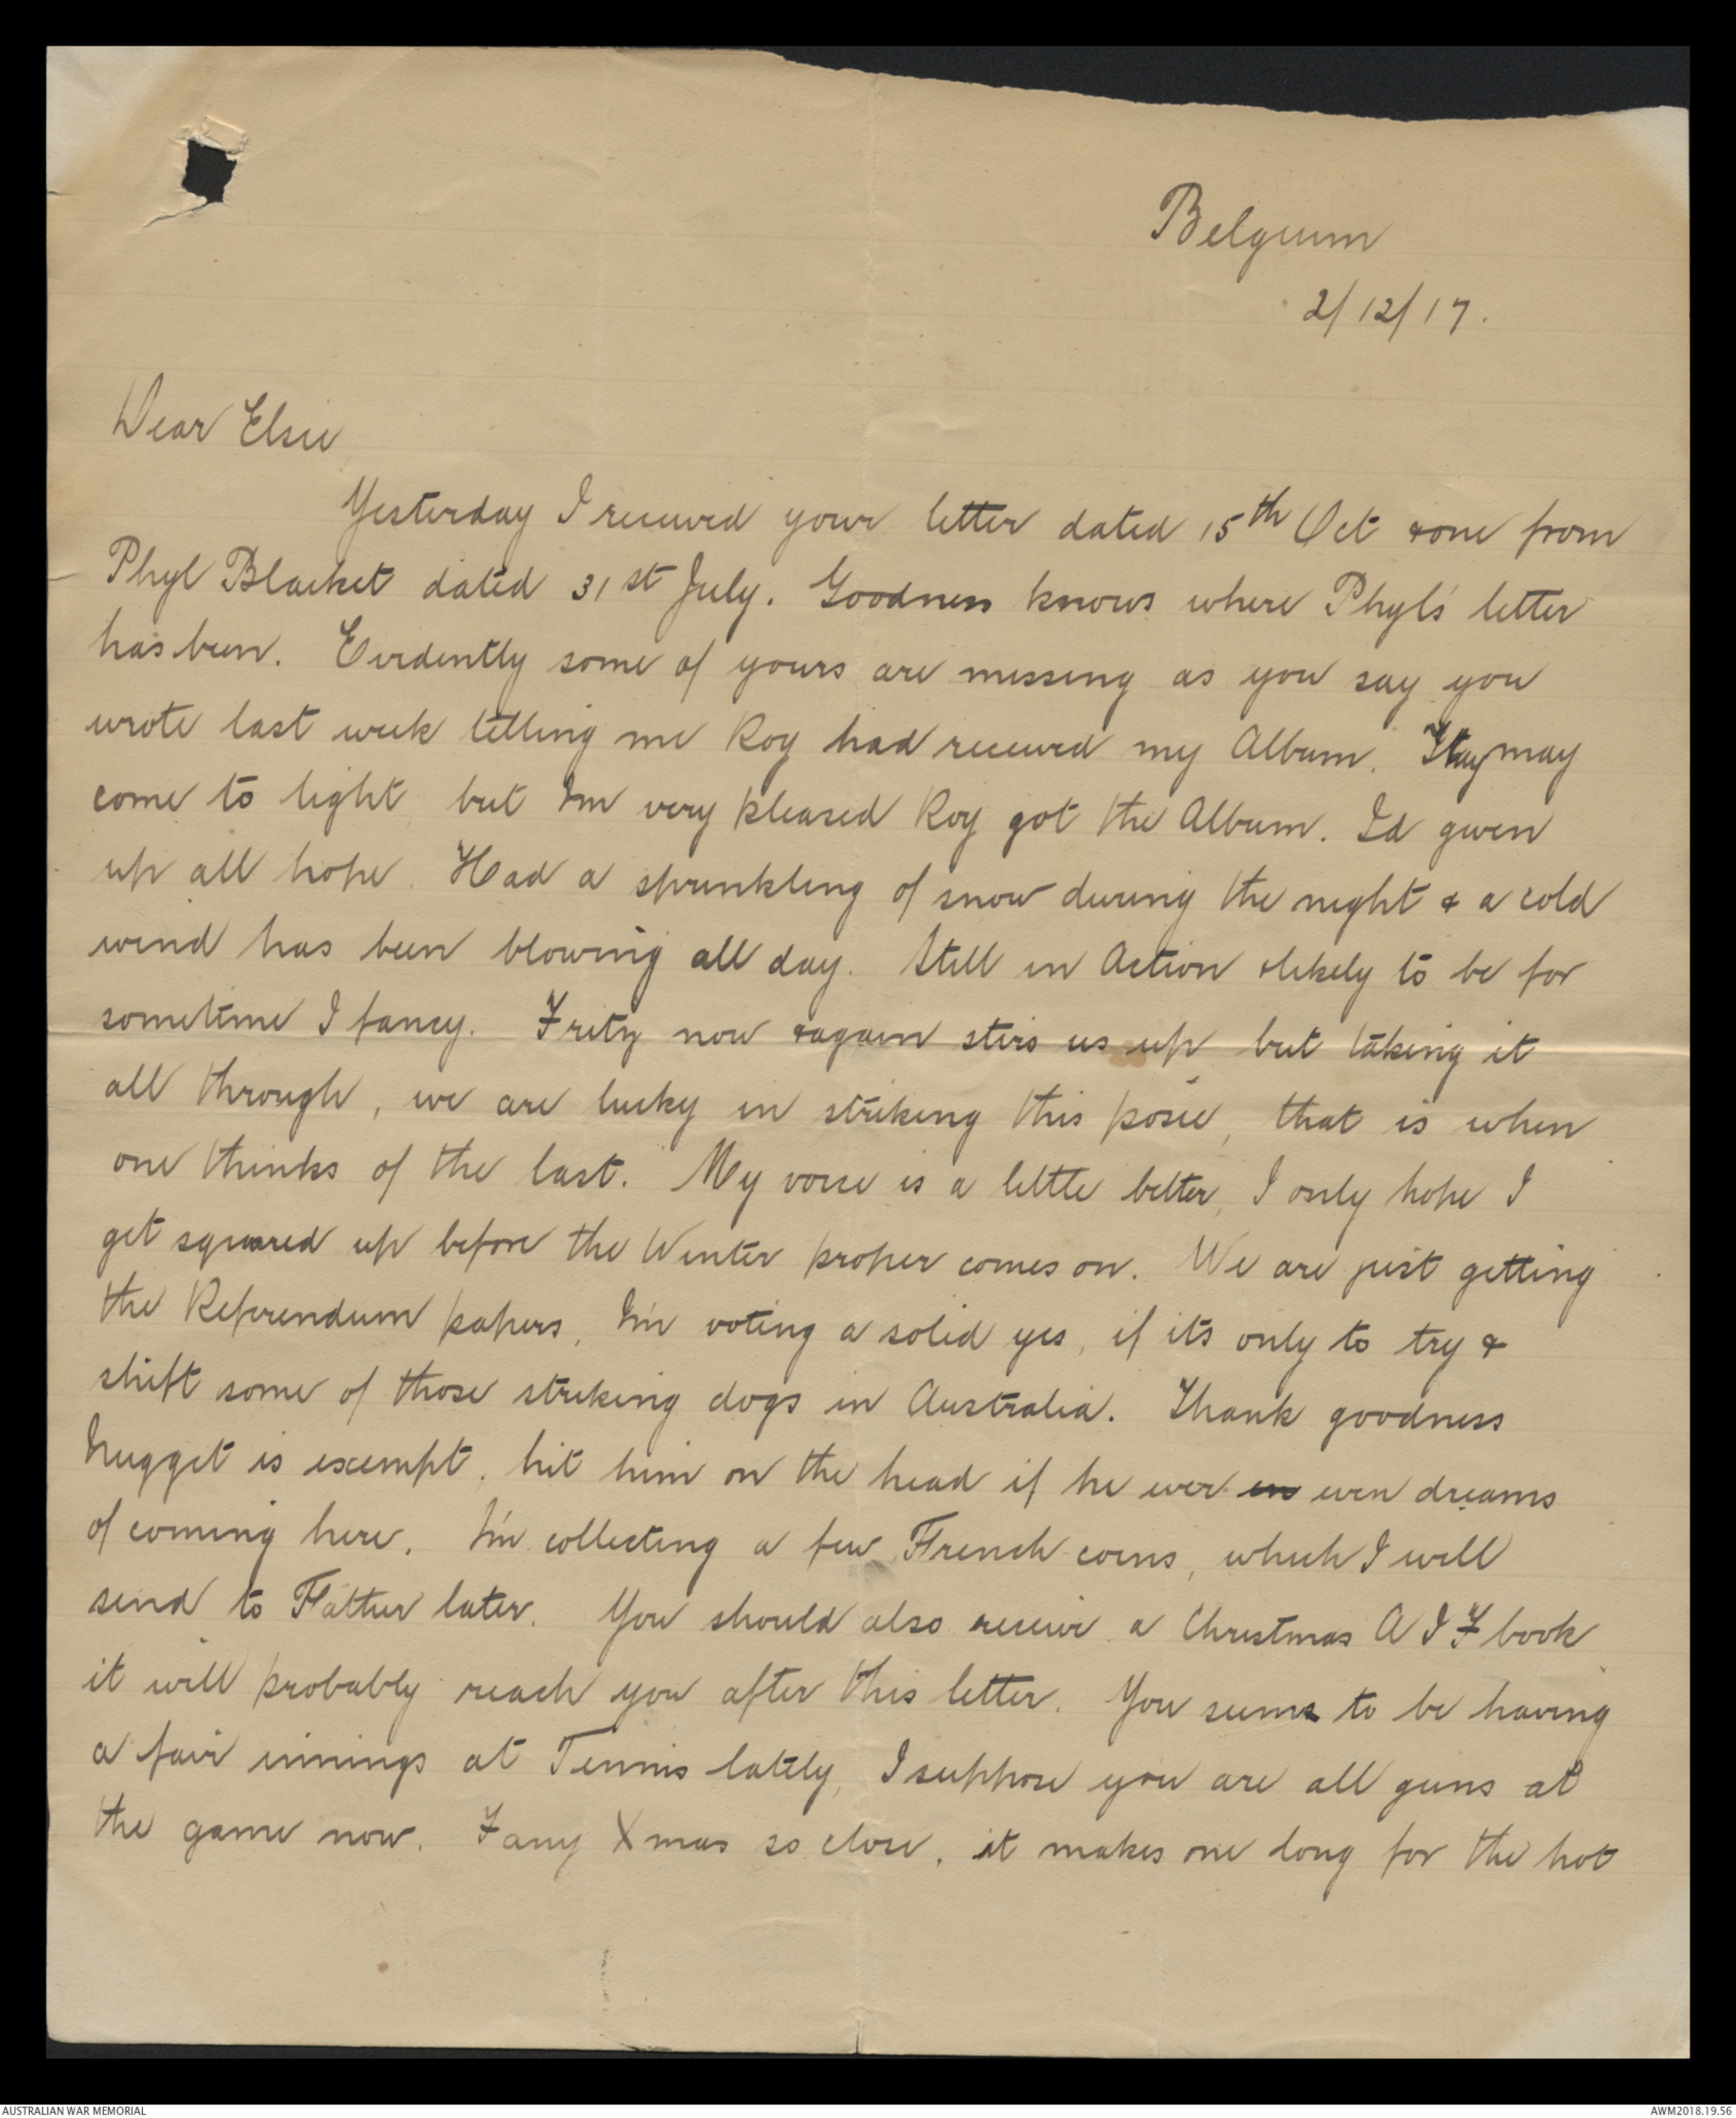 Belgium
2/12/17.
Dear Elsie
Yesterday I received your letter dated 15th Oct & one from
Phyl Blacket dated 31st July. Goodness knows where Phyl's letter
has been. Evidently some of yours are missing as you say you
wrote last week telling me Roy had received my Album. They may
come to light, but I'm very pleased Roy got the Album. I'd given
up all hope. Had a sprinkling of snow during the night & a cold
wind has been blowing all day. Still in Action & likely to be for
sometime I fancy. Fritz now & again stirs us up but taking it
all through, we are lucky in striking this posie, that is when
one thinks of the last. My voice is a little better, I only hope I
get squared up before the Winter proper comes on. We are just getting
the Referendum papers, I'm voting a solid yes, if its only to try &
shift some of those striking dogs in Australia. Thank goodness
Nugget is exempt, hit him on the head if he ever en even dreams
of coming here. I'm collecting a few French coins, which I will
send to Father later. You should also receive a Christmas A I F book
it will probably reach you after this letter. You seem to be having
a fair innings at Tennis lately, I suppose you are all guns at
the game now. Fancy Xmas so close, it makes one long for the hot
AUSTRALIAN WAR MEMORIAL
AWM2018.19.56